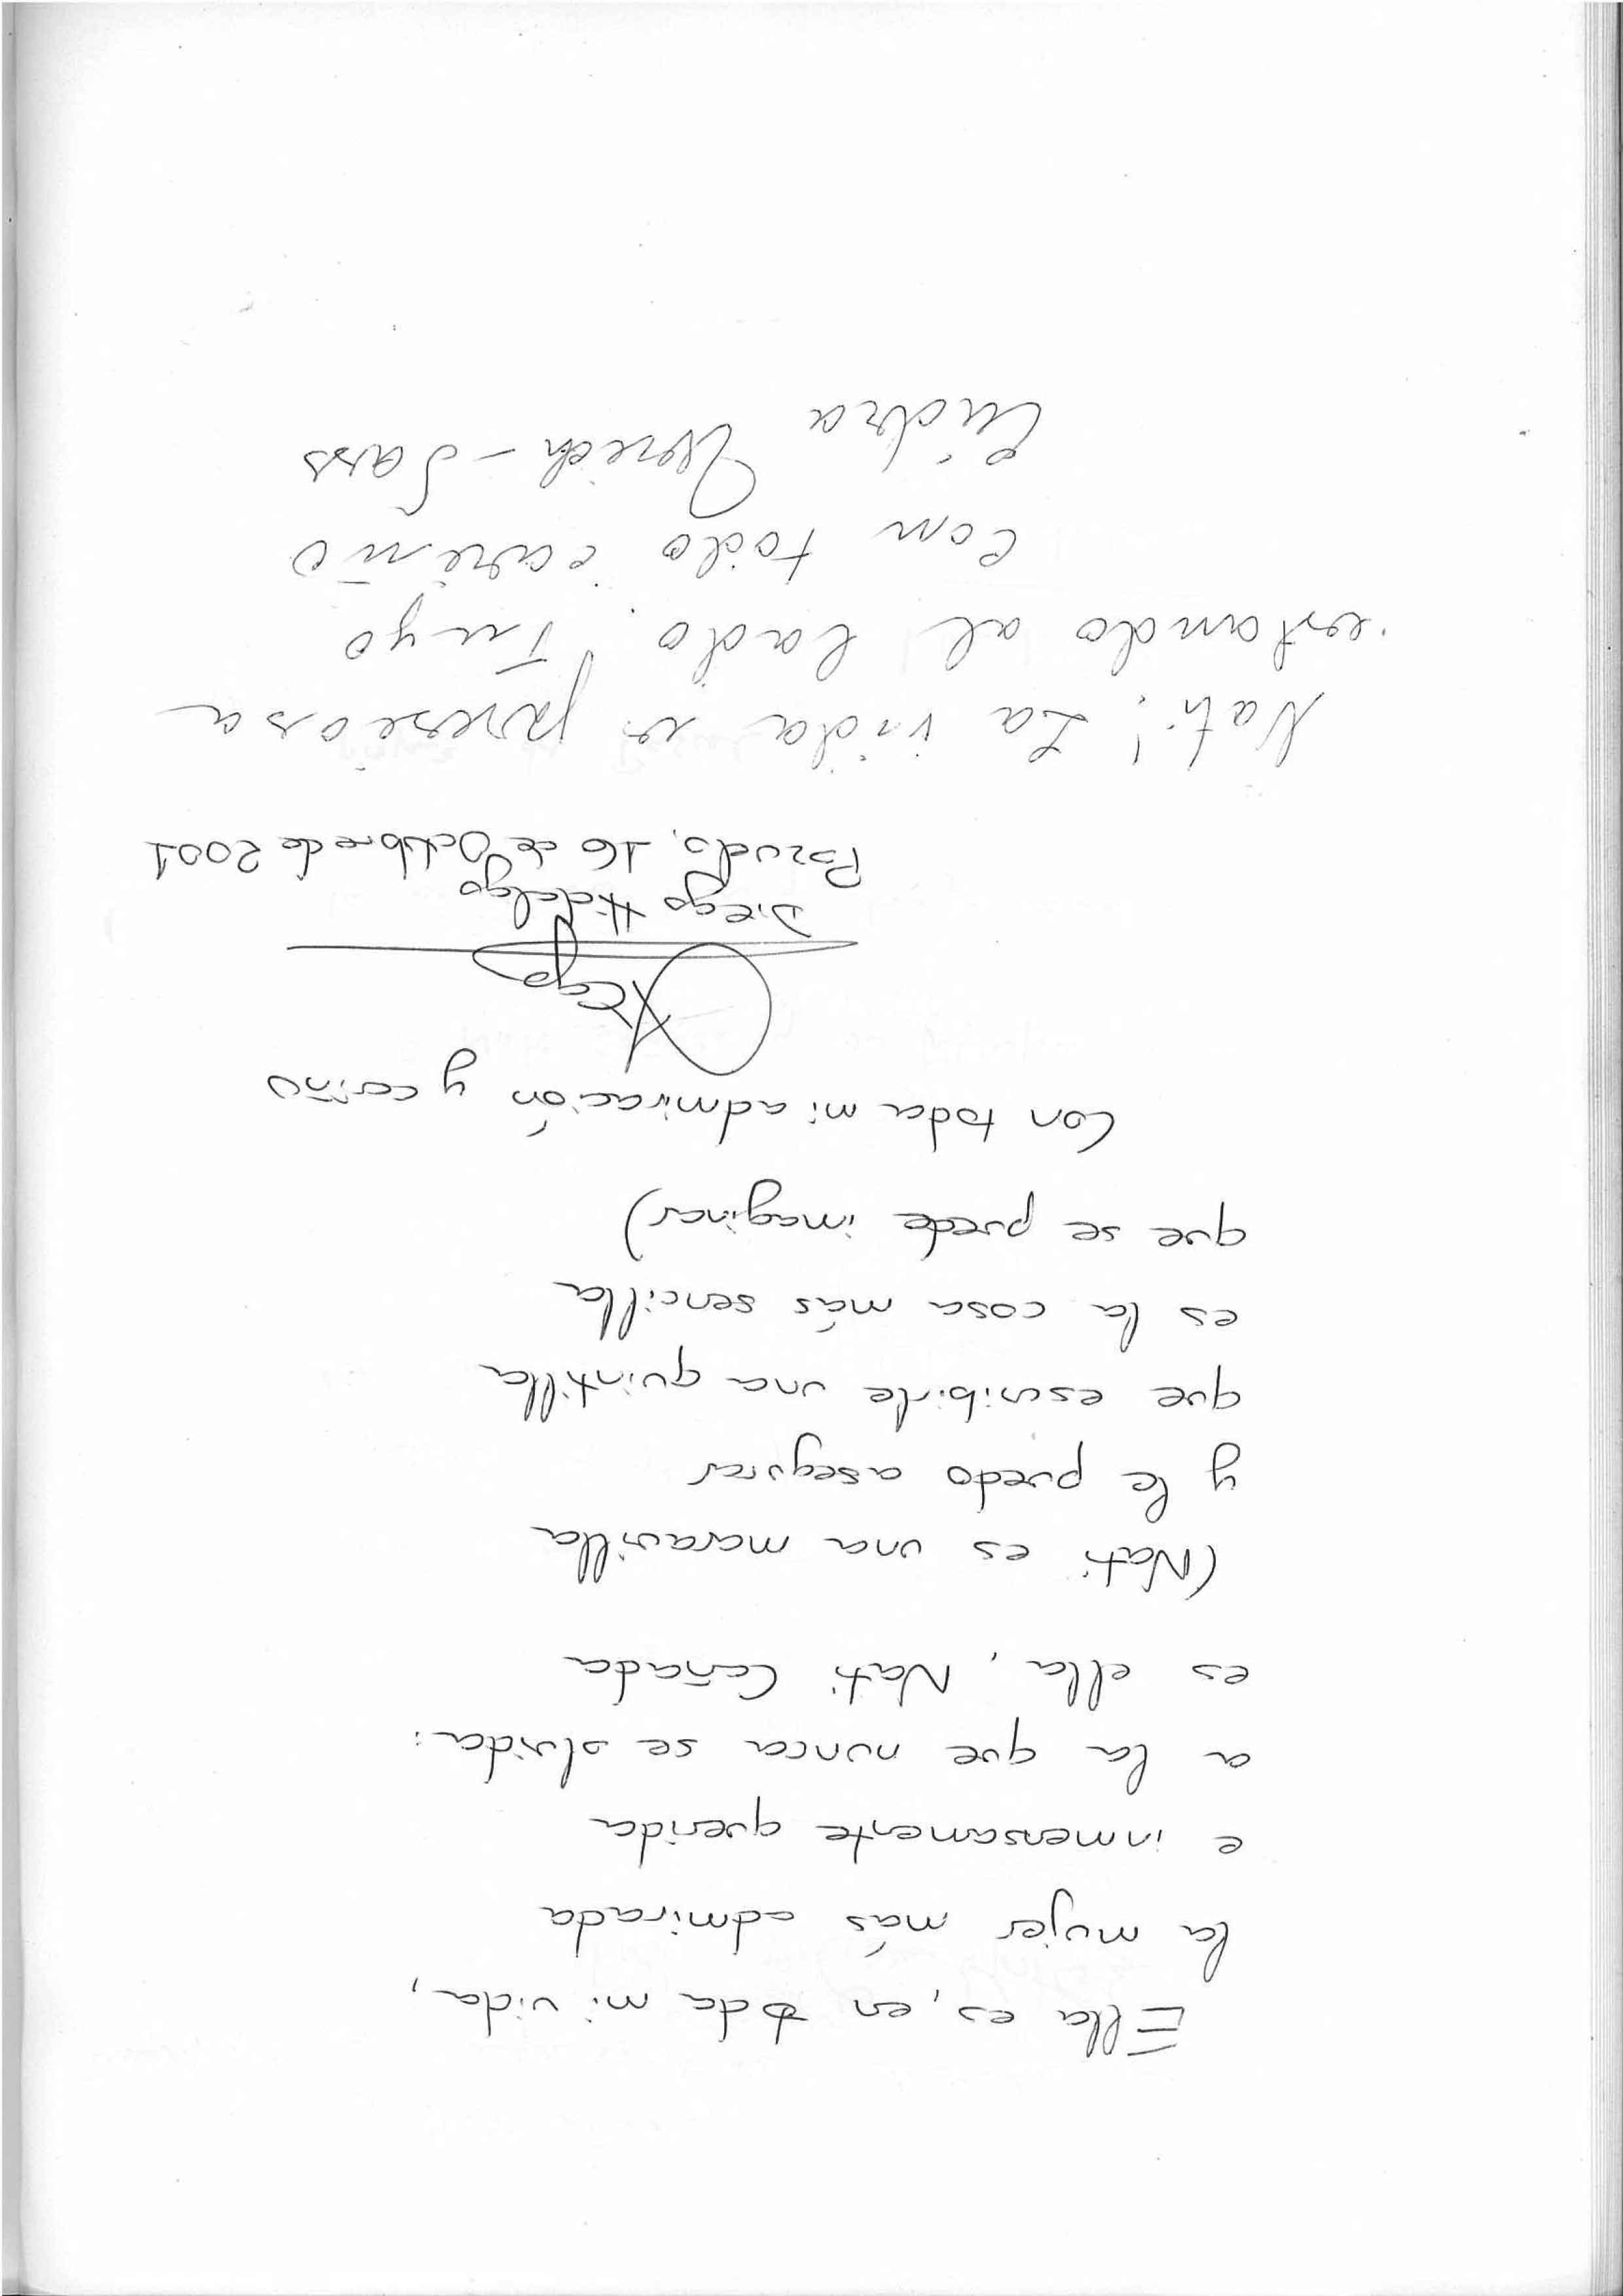 Ella es, en toda mi vida,
la mujer más admirada
e inmensamente querida
a la que nunca se olvida:
es ella, Nati Cañada
(Nati es una maravilla
y le puedo asegurar
que escribirle una quintilla
es la cosa más sencilla
que se puede imaginar)
Con toda mi admiración y cariño
Diego
Diego Hidalgo
16 de Octubre de 2001
Nati! La vida es preseosa
estando al lado Tuyo
Con todo cariño